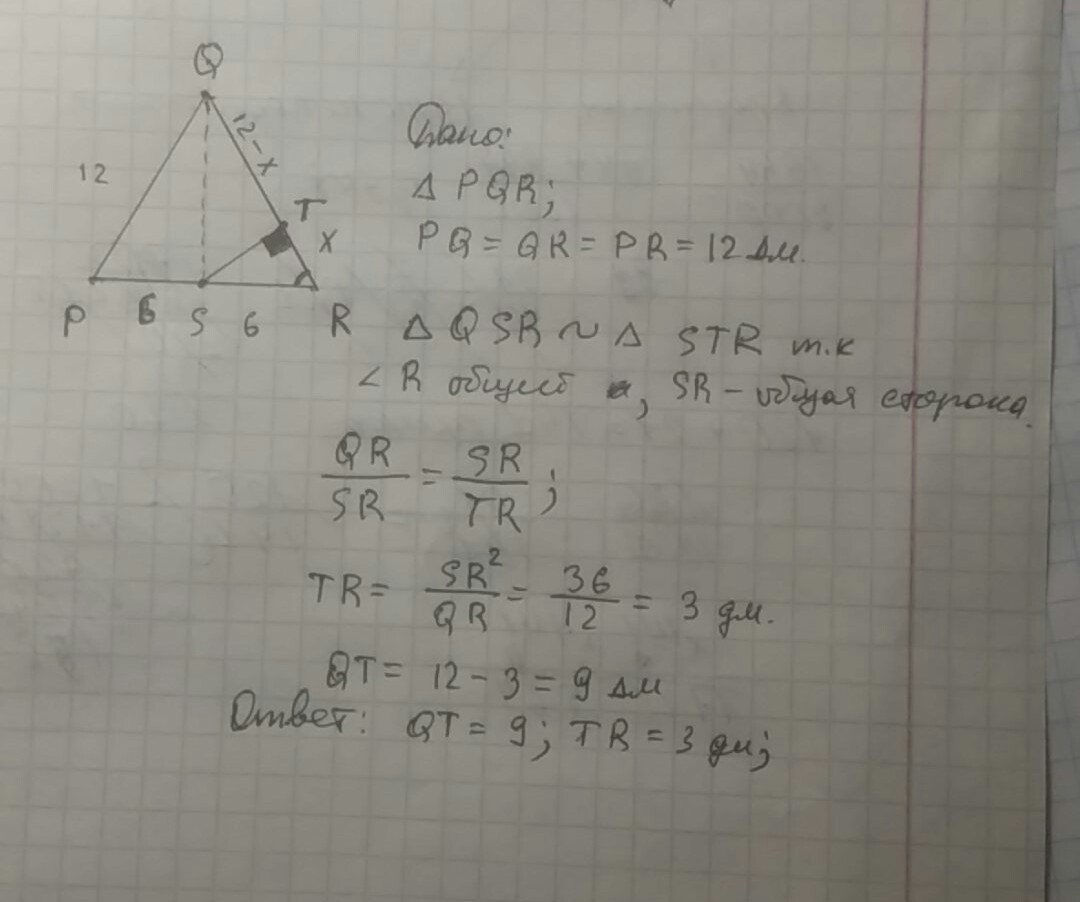 Q
12
12-x
T
x
P 6 S 6 R
Дано:
Δ PQR;
PQ = QR = PR = 12 дм.
Δ QSR ~ Δ STR т.к
∠ R общий, SR - общая сторона.
QR/SR = SR/TR;
TR = SR²/QR = 36/12 = 3 дм.
QT = 12 - 3 = 9 дм
Ответ: QT = 9; TR = 3 дм;